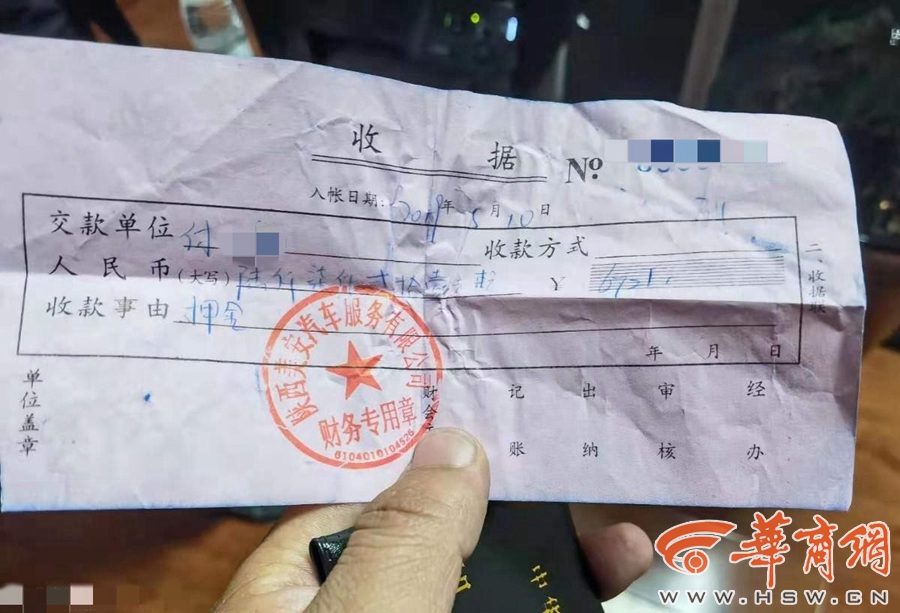 收 据 No
入帐日期: 年 5 月 10 日
交款单位 付 收款方式
人民币(大写) ¥ 6721
收款事由 押金
年 月 日
二、收据联
单位盖章
财会 记账 出纳 审核 经办
陕西美安汽车服务有限公司
财务专用章
6104010104526
华商网
WWW.HSW.CN